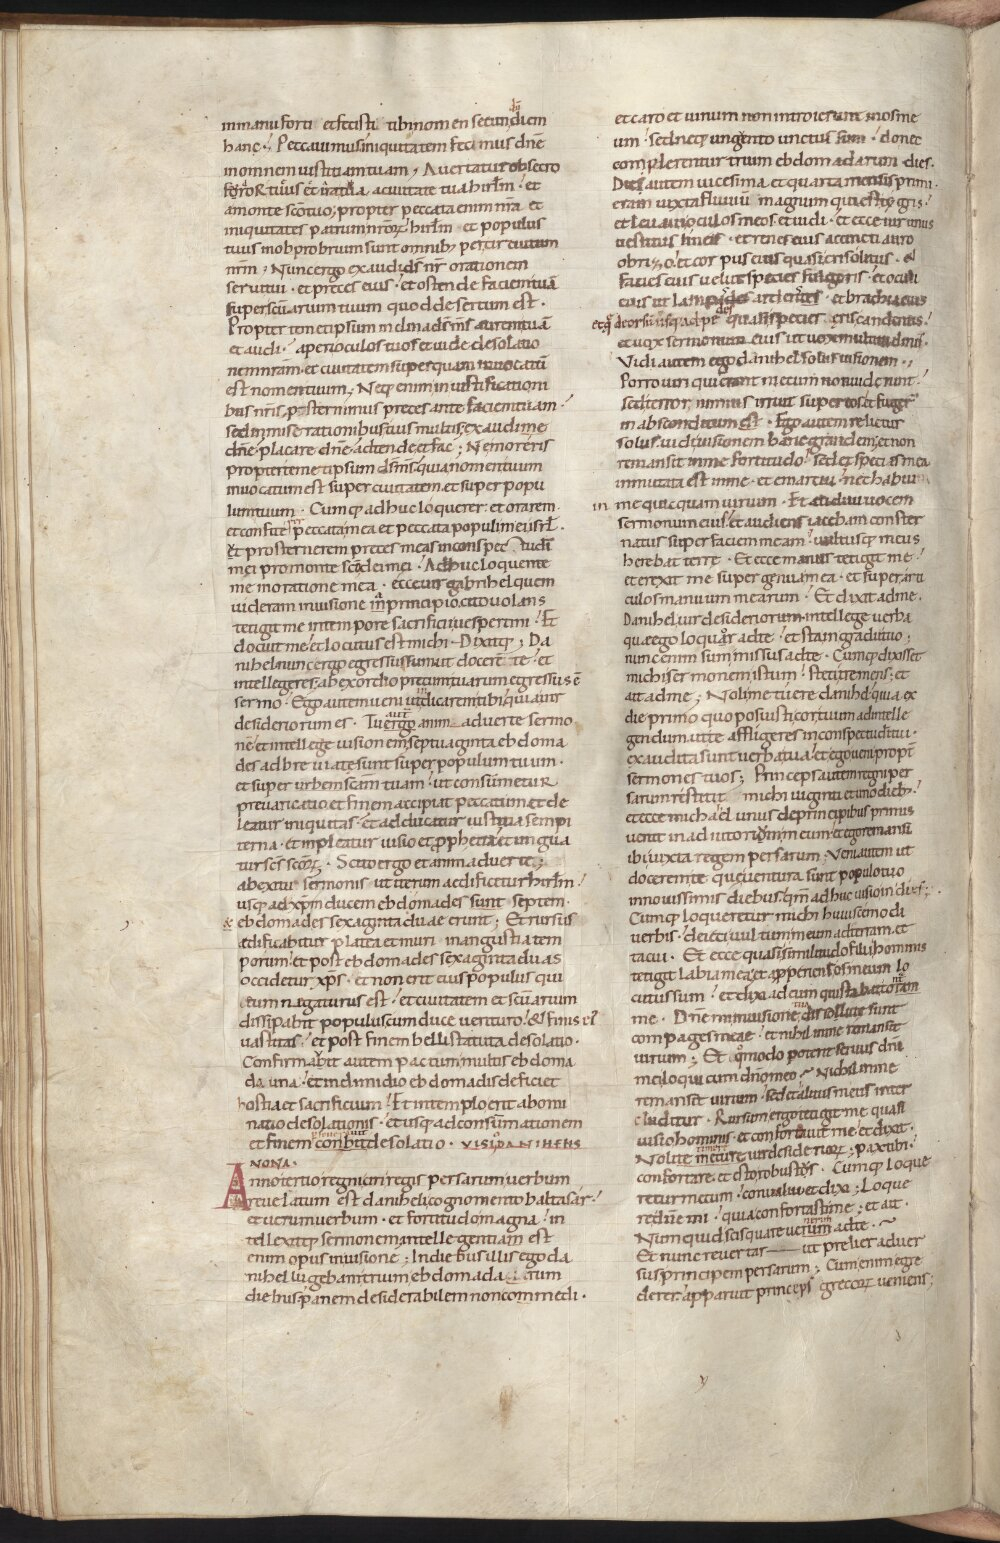 inmanu forti et fecisti tibi nomen secundum diem
hanc · Peccavimus iniquitatem fecimus dñe
in omnem iustitiam tuam, Avertatur obsecro
ira tua et furor tuus a civitate tua hirlm · et
a monte scõ tuo; propter peccata enim nr̃a et
iniquitates patrum nrorꝝ hirlm et populus
tuus in obprobrium sunt omnibꝫ per circuitum
nrm, Nunc ergo exaudi ds nr̃ orationem
servi tui · et preces eius · et ostende faciem tuã
super scuarium tuum quod desertum est ·
Propter temetipsum inclina ds ms aurem tuã
et audi · aperi oculos tuos et vide desolatio
nem nram et civitatem super quam invocatũ
est nomen tuum, Neqꝫ enim in iustificationi
bus nr̃is prosternimus preces ante faciem tuam ·
sed in miserationibus tuis multis, exaudi me
dñe placare dñe adtende et fac; Nemoreris
propter temetipsum ds ms quia nomen tuum
invocatum est super civitatem et super popu
lum tuum · Cumqꝫ adhuc loquerer et orarem
et confiterer peccata mea et peccata populi mei isrl̃ ·
Et prosternerem preces meas in conspectu di
mei pro monte scõ dei mei · Adhuc loquente
me in oratione mea · ecce vir gabrihel quem
videram in visione in principio cito volans
tetigit me in tempore sacrificii vespertini · Et
docuit me et locutus est michi · Dixitqꝫ; Da
nihel nunc ergo egressus sum ut docerẽ te · et
intellegeres; ab exordio precum tuarum egressus ẽ
sermo · Ego autem veni ut indicarem tibi quia vir
desideriorum es · Tu ergo animadverte sermo
nẽ et intellege visionem septuaginta ebdoma
des adbreviate sunt super populum tuum ·
et super urbem scãm tuam · ut consumetur
prevaricatio et finem accipiat peccatum et de
leatur iniquitas · et adducatur iustitia sempi
terna · et impleatur visio et prophetia et ungua
tur scs scõrꝝ · Scito ergo et animadverte;
ab exitu sermonis ut iterum aedificetur hirlm ·
usqꝫ ad xpm ducem ebdomades sunt septem ·
& ebdomades sexaginta duae erunt; Et rursus
edificabitur platea et muri in angustia tem
porum et post ebdomades sexaginta duas
occidetur xps · et non erit eius populus qui
eum negaturus est · et civitatem et scuarium
dissipabit populus cum duce venturo · & finis ei
vastitas · et post finem belli statuta desolatio ·
Confirmabit autem pactum multis ebdoma
da una · et in dimidio ebdomadis deficiet
hostia et sacrificium · Et in templo erit abomi
natio desolationis · et usqꝫ ad consummationem
et finem desolatio · VISIO DANIHELIS
NONA ·
Anno tertio regni ciri regis persarum verbum
revelatum est daniheli cognomento baltasar ·
et verum verbum · et fortitudo magna · in
tellexitqꝫ sermonem intellegentia enim est
enim opus in visione; In diebus illis ego da
nihel lugebam trium ebdomadarum
diebus panem desiderabilem non commedi ·
et caro et vinum non introierunt in os me
um · sed neqꝫ ungento unctus sum · donec
complerentur trium ebdomadarum dies ·
Dies autem vicesima et quarta mensis primi ·
eram iuxta fluvium magnum qui est tygris ·
et levavi oculos meos et vidi · et ecce vir unus
vestitus lineis · et renes eius accincti auro
obrizo · et corpus eius quasi crisolitus · &
facies eius velut species fulgoris · et oculi
eius ut lampades ardentes · et brachia eius
et que deorsum usqꝫ ad pedes quasi species eris candentis ·
et vox sermonum eius ut vox multitudinis ·
Vidi autem ego danihel solus visionem ·
Porro viri qui erant mecum non viderunt ·
sed terror nimius irruit super eos et fugerunt
in absconditum est · Ego autem relictus
solus vidi visionem hanc grandem; et non
remansit in me fortitudo sed et species mea
inmutata est in me · et emarcui · nec habui
in me quicquam virium · Et audivi vocem
sermonum eius et audiens iacebam conster
natus super faciem meam · vultusqꝫ meus
herebat terre · Et ecce manus tetigit me ·
et erexit me super genua mea · et super arti
culos manuum mearum · Et dixit ad me ·
Danihel vir desideriorum intellege verba
que ego loquor ad te · et sta in gradu tuo;
nunc enim sum missus ad te · Cumqꝫ dixisset
michi sermonem istum · steti tremens; et
ait ad me; Noli metuere danihel quia ex
die primo quo posuisti cor tuum ad intelle
gendum ut te affligeres in conspectu di tui ·
exaudita sunt verba tua · et ego veni propt̃
sermones tuos; Princeps autem regni per
sarum restitit michi viginti et uno diebꝫ ·
et ecce michael unus de principibus primis
venit in adiutorium meum et ego remansi
ibi iuxta regem persarum; Veni autem ut
docerem te que ventura sunt populo tuo
in novissimis diebus · qm̃ adhuc visio in dies ·
Cumqꝫ loqueretur michi huiuscemodi
verbis · deieci vultum meum ad terram et
tacui · Et ecce quasi similitudo filii hominis
tetigit labia mea et apperiens os meum lo
cutus sum · et dixi ad eum qui stabat contra
me · Dñe mi in visione tua dissolute sunt
compages meae · et nihil in me remansit
virium; Et quomodo poterit servus dñi
mei loqui cum dño meo · Nichil in me
remansit virium · sed et alitus meus inter
cluditur · Rursum ergo tetigit me quasi
visio hominis · et confortavit me et dixit ·
Noli timere vir desideriorꝝ; pax tibi ·
confortare et esto robustus · Cumqꝫ loque
retur mecum · convalui et dixi; Loque
re dñe mi · quia confortasti me; et ait ·
Numquid scis quare venerim ad te ·
Et nunc revertar ut prelier adver
sus principem persarum; Cum enim egre
derer apparuit princeps grecorꝝ veniens;